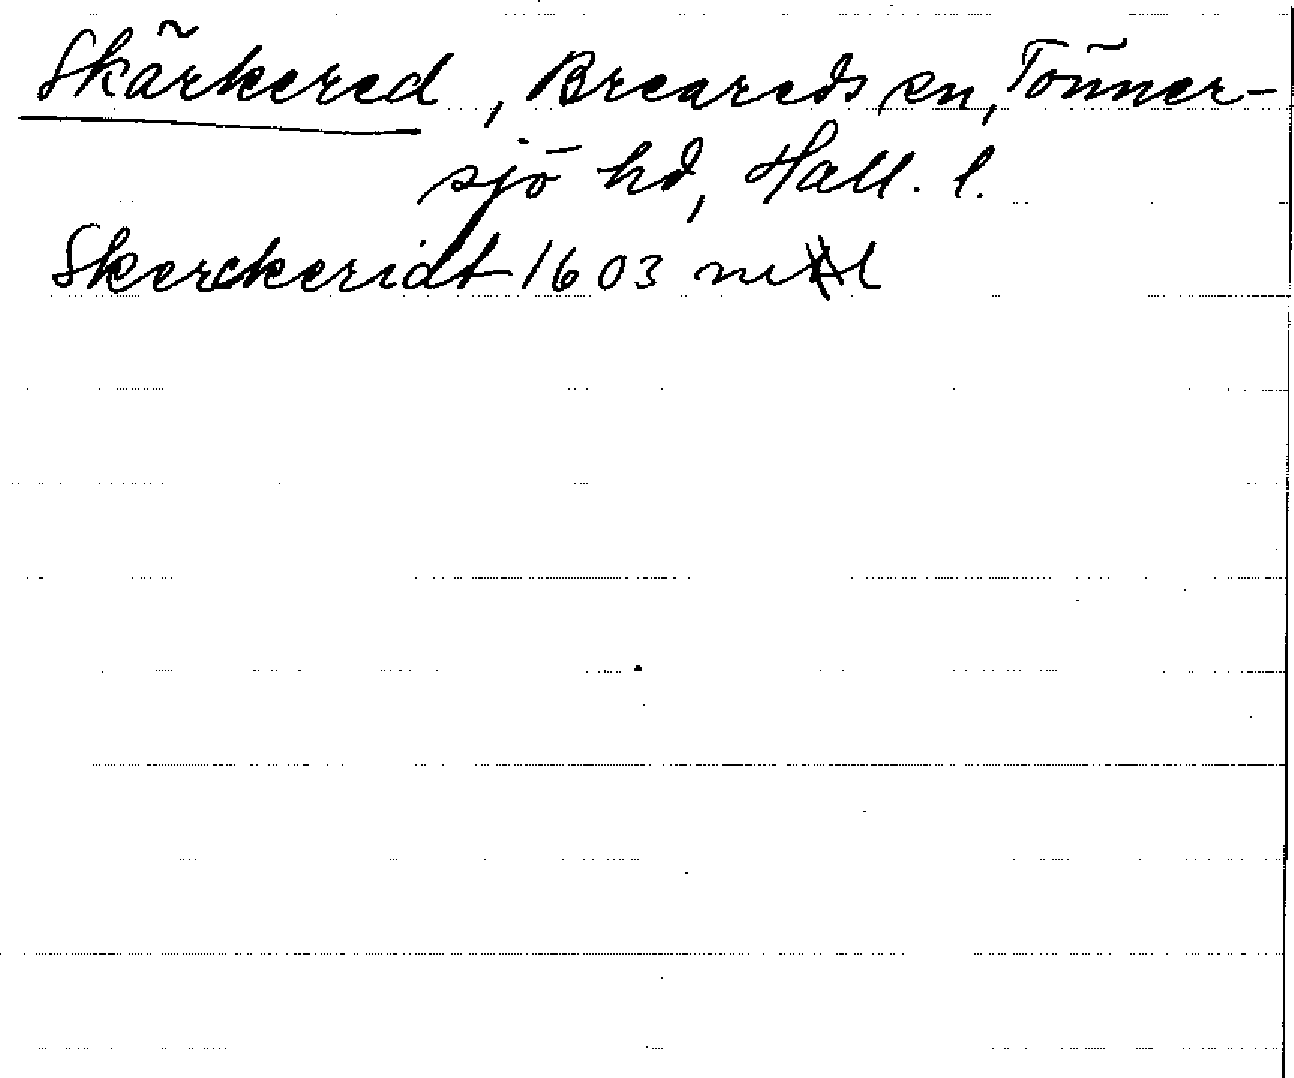 Skärkered, Breareds sn, Tönner-
sjö hd, Hall. l.
Skerckeridt 1603